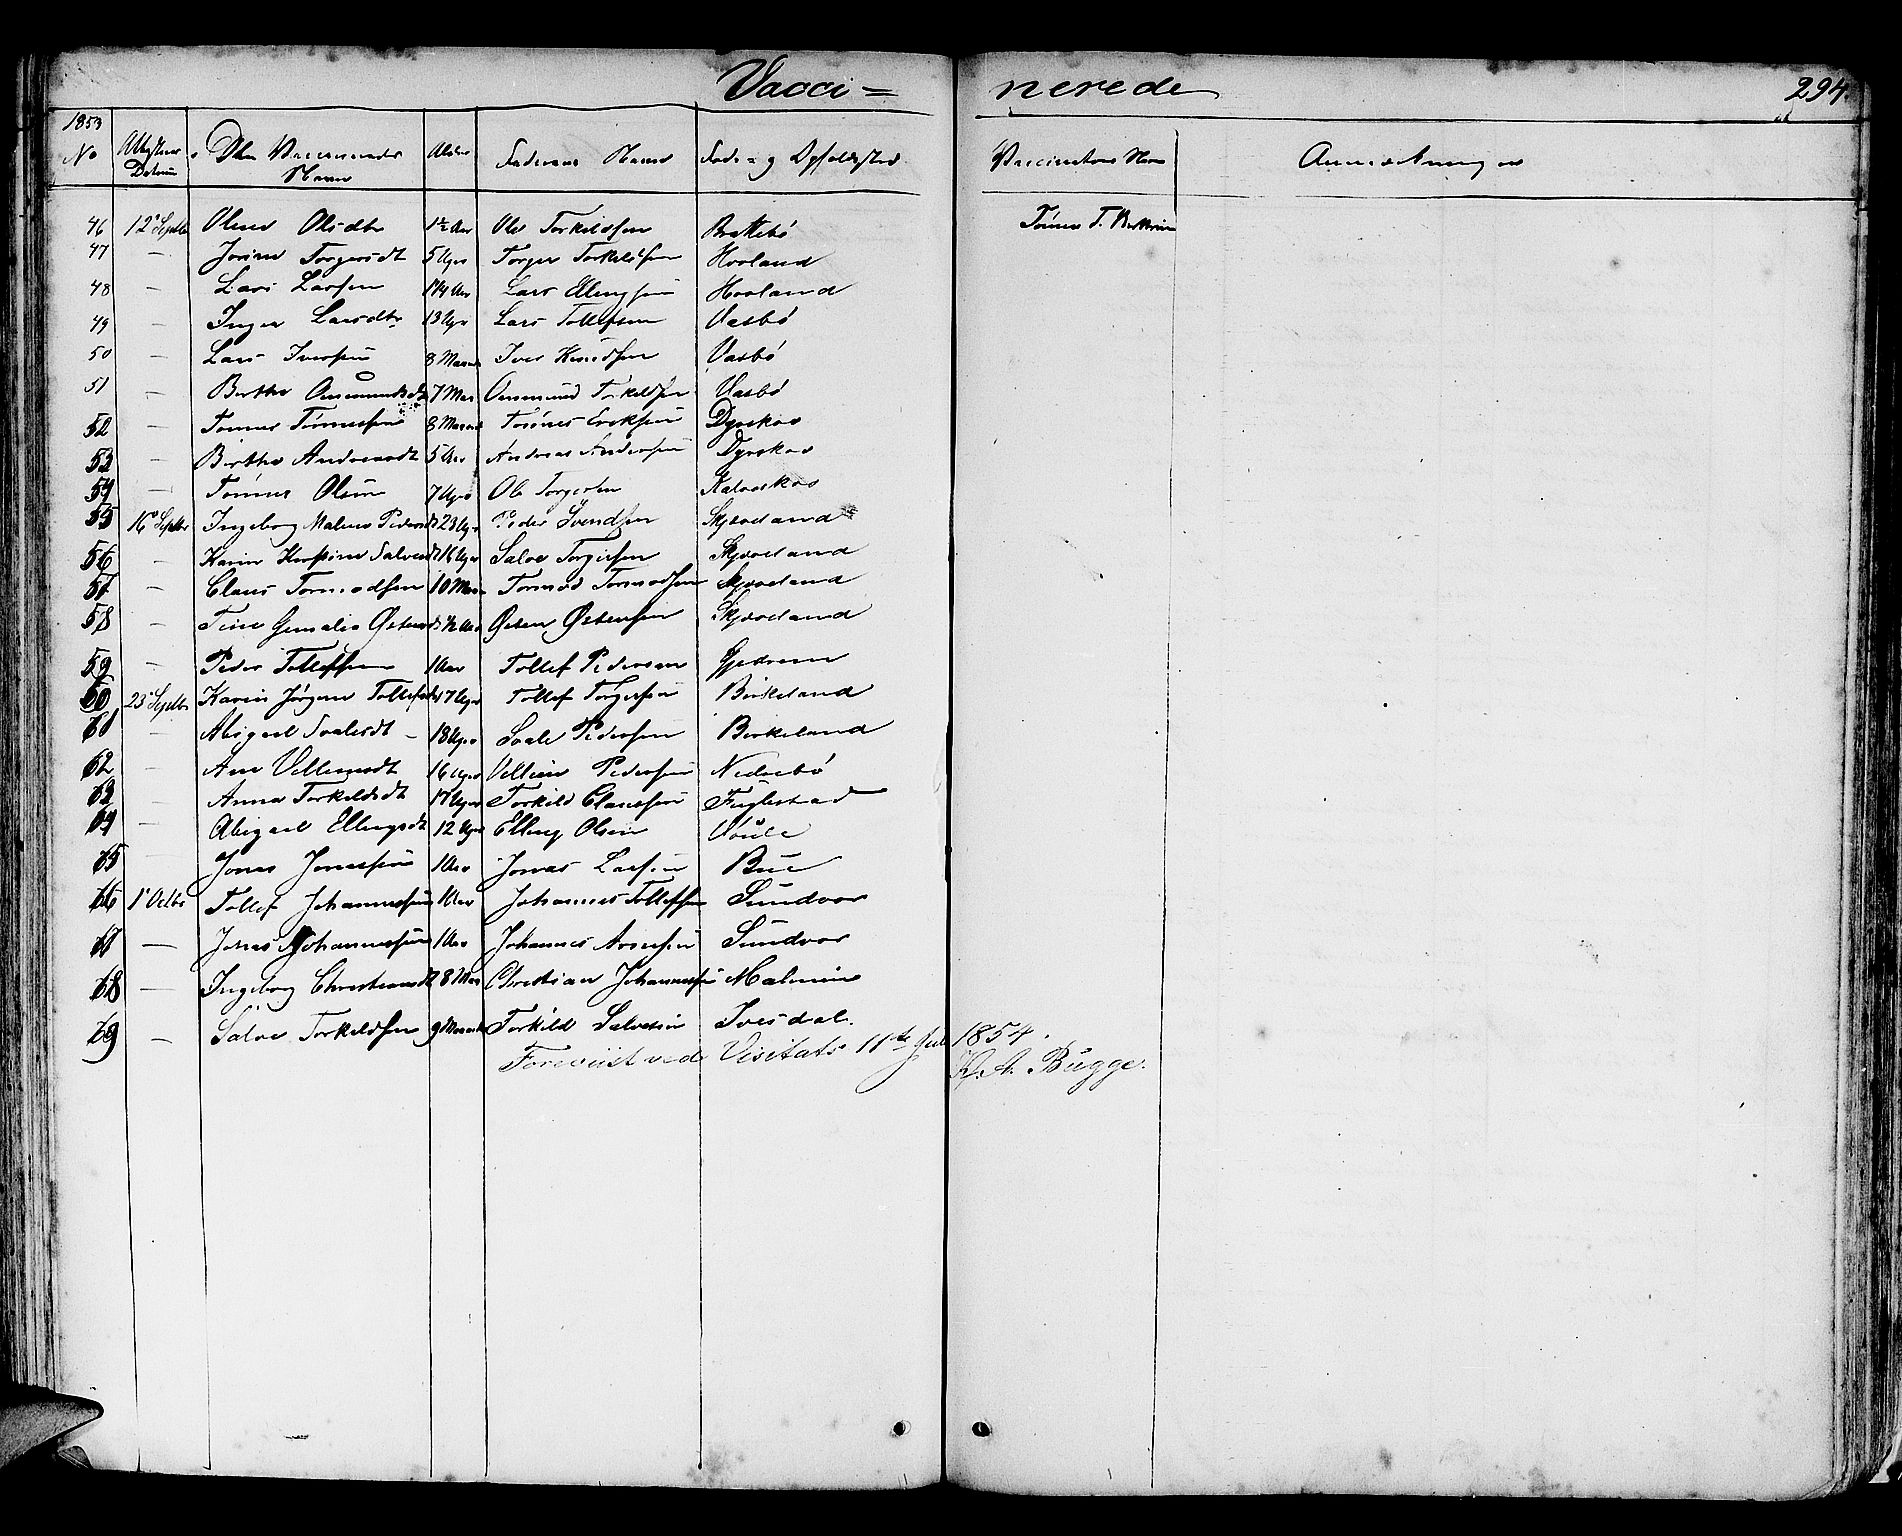 Vacci = nerede 294
1853
No Attestens Datum Den Vaccineredes Navn Alder Faderens Navn Føde = og Opholdssted Vaccinateurs Navn Anmærkninger
46 12 Septb Olene Olsdtr 1½ Aar Ole Torkildsen Brattebø Tønnes T.
47 — Jorine Torgersdt 5 Uger Torger Torkildsen Hovland
48 — Lars Larsen 1¼ Aar Lars Ellingsen Hovland
49 — Inger Larsdtr 13 Uger Lars Tollefsen Vasbø
50 — Lars Iversen 8 Maaned Iver Knudsen Vasbø
51 — Berthe Aasmundsdt 7 Maa Aasmund Torkildsen Vasbø
52 — Tønnes Tønnessen 8 Maaned Tønnes Eriksen Dyrskov
53 — Berthe Andreasdt 5 Aar Andreas Andersen Dyrskov
54 — Tønnes Olsen 7 Uger Ole Torgersen
55 16 Septbr Ingeborg Malene Pedersdt 23 Uger Peder Svendsen Skjæveland
56 — Karen Kirstine Salvesdt 16 Uger Salve Torgersen Skjæveland
57 — Claus Tormodsen 10 Maa Tormod Tormodsen Skjæveland
58 — Tine Østensdt ½ Aar Østen Østensen Skjæveland
59 — Peder Tollefsen 1 Aar Tollef Pedersen Gjedrem
60 23 Septbr Karen Jørgine Tollefsdt 17 Uger Tollef Torgersen Birkeland
61 — Abigael Svalesdt — 18 Uger Svale Pedersen Birkeland
62 — Ane Villumsdt 16 Uger Villum Pedersen Nedrebø
63 — Anna Torkildsdt 17 Uger Torkild Claussen Fuglestad
64 — Abigael Ellingsdt 12 Uger Elling Olsen
65 — Jonas Jonassen 1 Aar Jonas Larsen Bue
66 1 Octbr Tollef Johannessen 1 Aar Johannes Tollefsen Sundvor
67 — Jonas Johannessen 1 Aar Johannes Arnesen Sundvor
68 — Ingeborg Christiansdt 8 Maa Christian Johannessen Malmin
69 — Salve Torkildsen 9 Maaneder Torkild Salvesen Ivesdal.
Foreviist ved Visitats 11te Juli 1854.
K. A. Bugge.